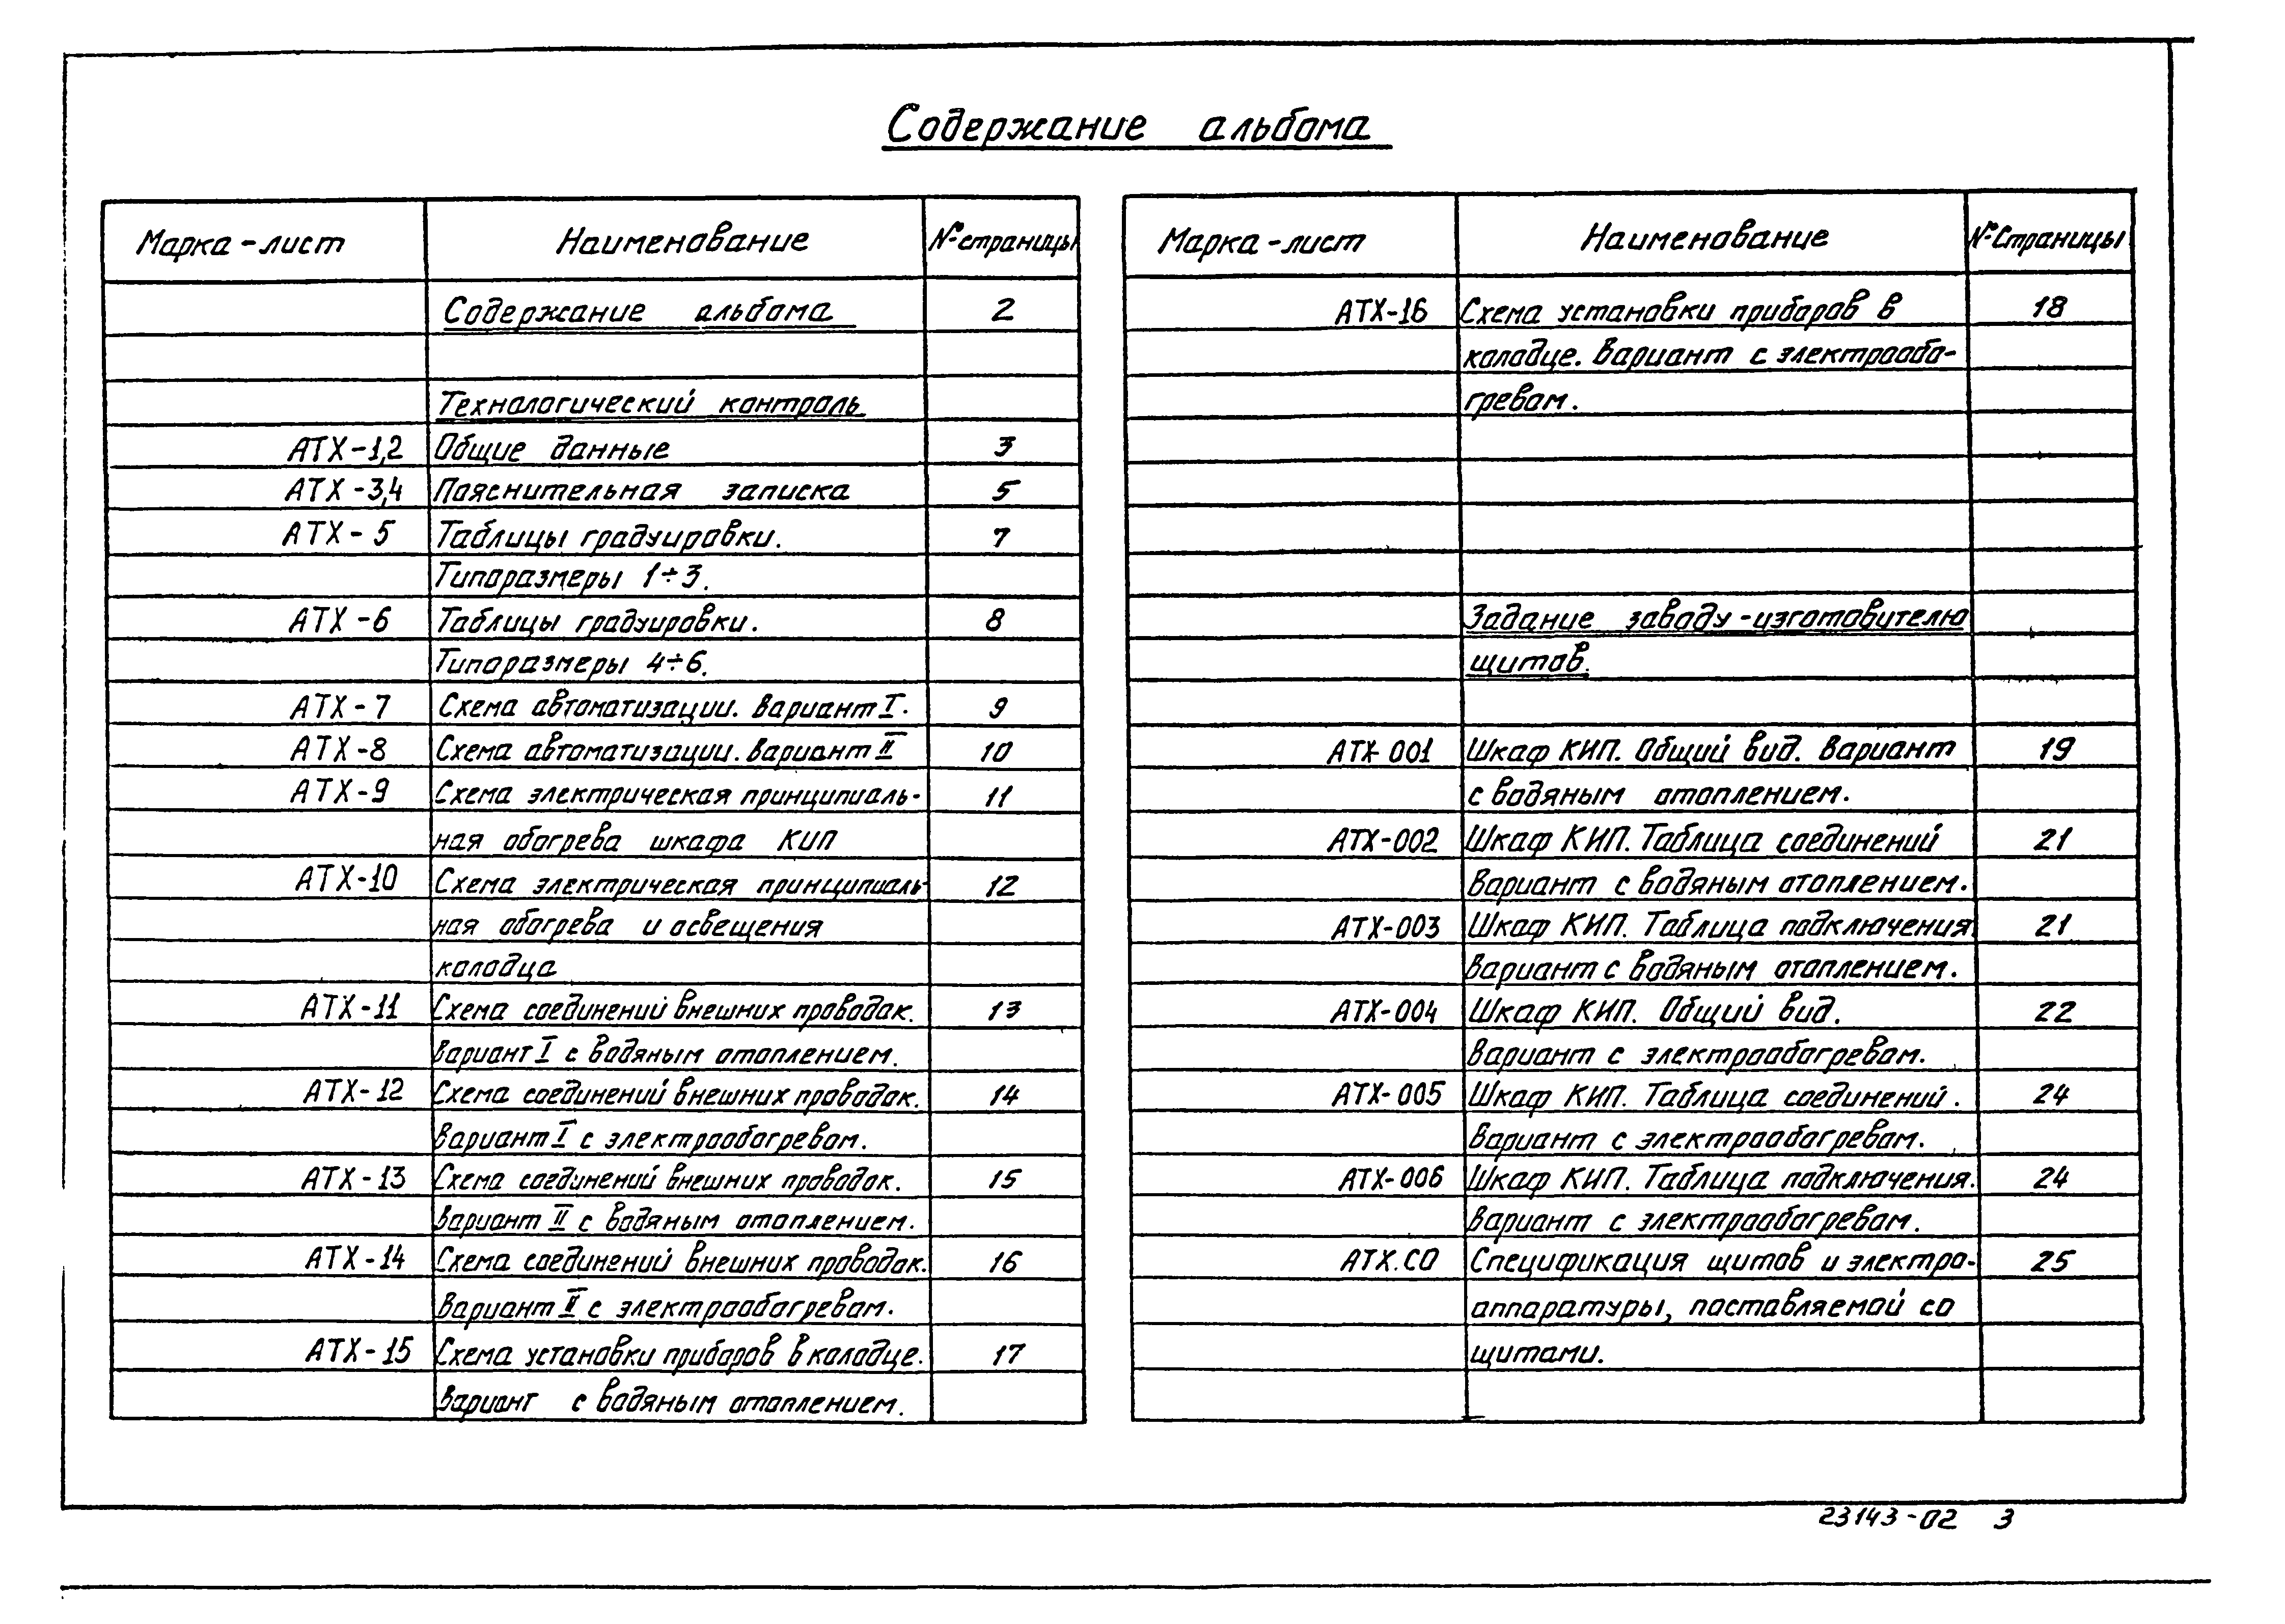 Содержание альбома
Марка-лист Наименование № страницы
Содержание альбома 2
Технологический контроль
АТХ-1,2 Общие данные 3
АТХ-3,4 Пояснительная записка 5
АТХ-5 Таблицы градуировки. 7
Типоразмеры 1÷3.
АТХ-6 Таблицы градуировки. 8
Типоразмеры 4÷6.
АТХ-7 Схема автоматизации. Вариант I. 9
АТХ-8 Схема автоматизации. Вариант II 10
АТХ-9 Схема электрическая принципиаль- 11
ная обогрева шкафа КИП
АТХ-10 Схема электрическая принципиаль- 12
ная обогрева и освещения
колодца
АТХ-11 Схема соединений внешних проводок. 13
Вариант I с водяным отоплением.
АТХ-12 Схема соединений внешних проводок. 14
Вариант I с электрообогревом.
АТХ-13 Схема соединений внешних проводок. 15
Вариант II с водяным отоплением.
АТХ-14 Схема соединений внешних проводок. 16
Вариант II с электрообогревом.
АТХ-15 Схема установки приборов в колодце. 17
Вариант с водяным отоплением.
Марка-лист Наименование № Страницы
АТХ-16 Схема установки приборов в 18
колодце. Вариант с электрообо-
гревом.
Задание заводу-изготовителю
щитов.
АТХ-001 Шкаф КИП. Общий вид. Вариант 19
с водяным отоплением.
АТХ-002 Шкаф КИП. Таблица соединений 21
Вариант с водяным отоплением.
АТХ-003 Шкаф КИП. Таблица подключения. 21
Вариант с водяным отоплением.
АТХ-004 Шкаф КИП. Общий вид. 22
Вариант с электрообогревом.
АТХ-005 Шкаф КИП. Таблица соединений. 24
Вариант с электрообогревом.
АТХ-006 Шкаф КИП. Таблица подключения. 24
Вариант с электрообогревом.
АТХ.СО Спецификация щитов и электро- 25
аппаратуры, поставляемой со
щитами.
23143-02 3